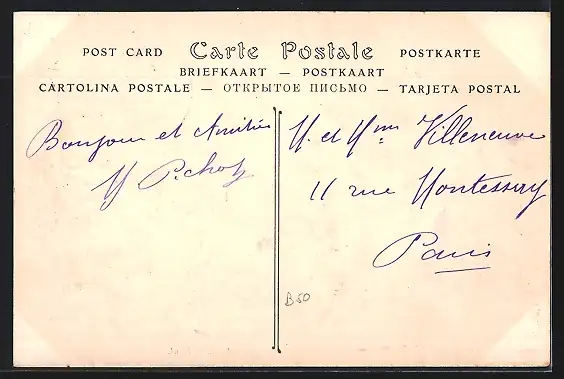 POST CARD Carte Postale POSTKARTE
BRIEFKAART — POSTKAART
CARTOLINA POSTALE — ОТКРЫТОЕ ПИСЬМО — TARJETA POSTAL
Bonjour et Amitiés
M. et Mme Villeneuve
11 rue Montessuy
Paris
B50